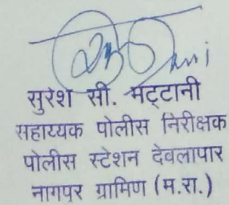 सुरेश सी. मट्टानी
सहाय्यक पोलीस निरीक्षक
पोलीस स्टेशन देवलापार
नागपुर ग्रामिण (म.रा.)